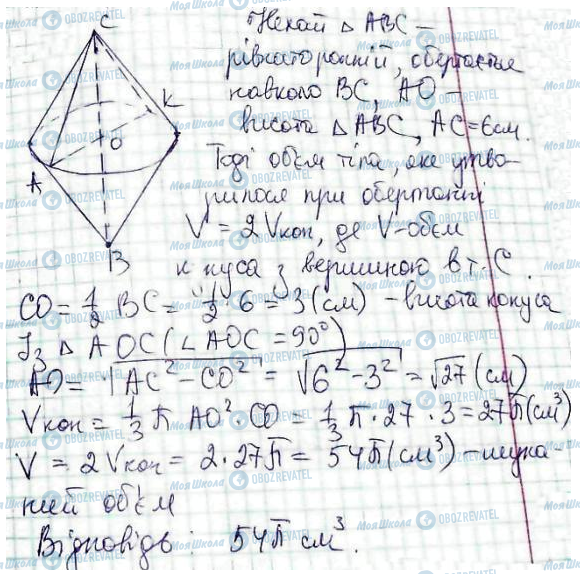 C
K
O
A
B
Нехай △ ABC –
рівносторонній, обертається
навколо BC, AO –
висота △ ABC, AC = 6 см.
Тоді об'єм тіла, яке утво-
рилося при обертанні
V = 2 Vкон, де V – об'єм
конуса з вершиною в т. C
CO = 1/2 BC = 1/2 · 6 = 3 (см) – висота конуса
Із △ AOC (∠AOC = 90°)
AO = √AC² – CO² = √6² – 3² = √27 (см)
Vкон = 1/3 π AO² · CO = 1/3 π · 27 · 3 = 27π (см³)
V = 2 Vкон = 2 · 27π = 54π (см³) – шука-
ний об'єм
Відповідь: 54π см³.
Моя Школа
OBOZREVATEL